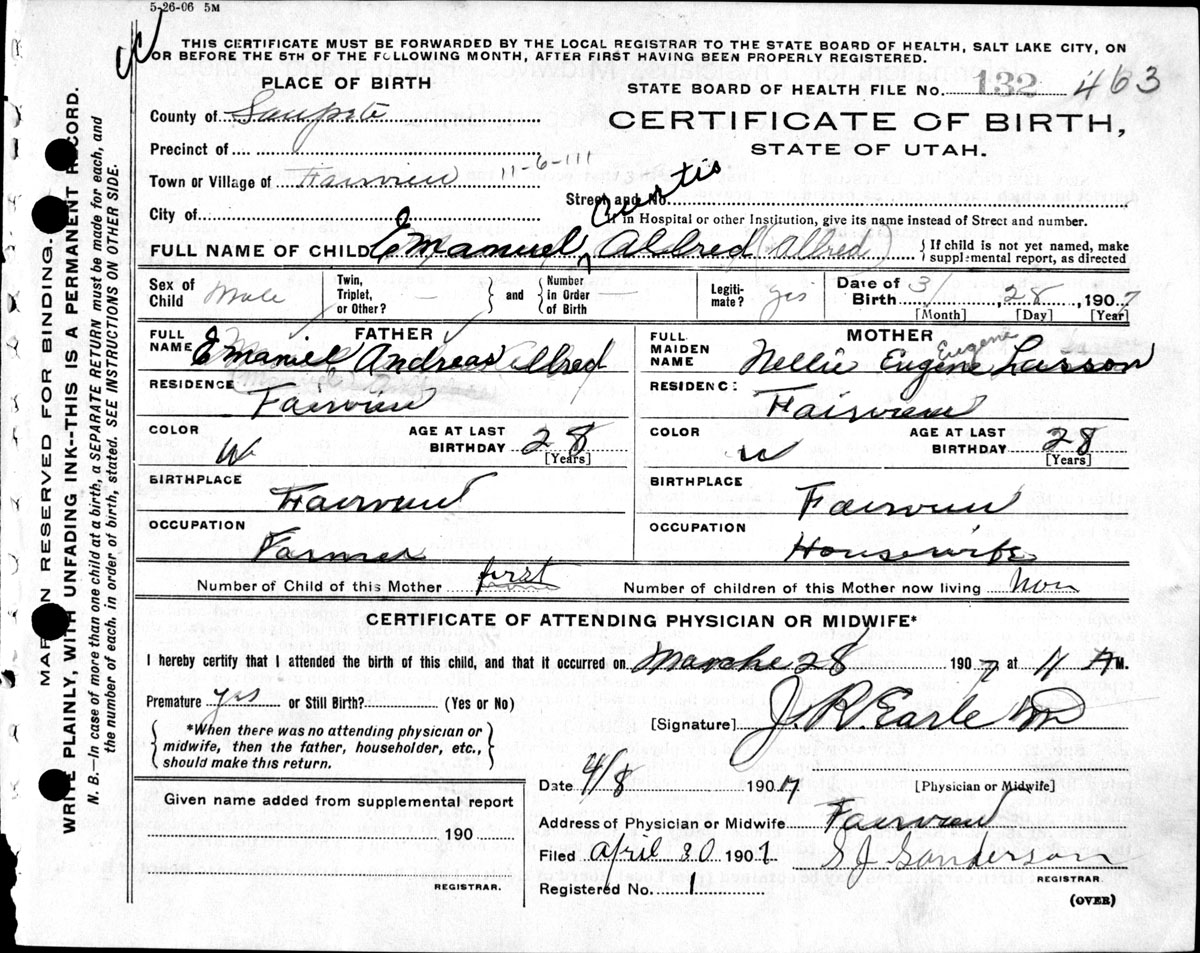 5-26-06 5M
THIS CERTIFICATE MUST BE FORWARDED BY THE LOCAL REGISTRAR TO THE STATE BOARD OF HEALTH, SALT LAKE CITY, ON
OR BEFORE THE 5TH OF THE FOLLOWING MONTH, AFTER FIRST HAVING BEEN PROPERLY REGISTERED.
PLACE OF BIRTH
STATE BOARD OF HEALTH FILE No. 132 463
County of Sanpete
CERTIFICATE OF BIRTH,
STATE OF UTAH.
Precinct of
Town or Village of Fairview 11-6-111
Street and No.
Curtis
City of
If in Hospital or other Institution, give its name instead of Street and number.
FULL NAME OF CHILD Emanuel Aldred (Allred)
If child is not yet named, make supplemental report, as directed
Sex of Child Male
Twin, Triplet, or Other? —
and
Number in Order of Birth —
Legitimate? yes
Date of Birth 3/ 28, 1907
[Month] [Day] [Year]
FATHER
FULL NAME Emaniel Andreas Allred
RESIDENCE Fairview
COLOR W
AGE AT LAST BIRTHDAY 28
[Years]
BIRTHPLACE Fairview
OCCUPATION Farmer
MOTHER
FULL MAIDEN NAME Nellie Eugene Larson
Eugene
RESIDENCE Fairview
COLOR W
AGE AT LAST BIRTHDAY 28
[Years]
BIRTHPLACE Fairview
OCCUPATION Housewife
Number of Child of this Mother first
Number of children of this Mother now living Non
CERTIFICATE OF ATTENDING PHYSICIAN OR MIDWIFE*
I hereby certify that I attended the birth of this child, and that it occurred on Marche 28 1907 at 11 A M.
Premature yes or Still Birth? (Yes or No)
[Signature] J. R. Earle MD
*When there was no attending physician or
midwife, then the father, householder, etc.,
should make this return.
Date 4/8 1907
[Physician or Midwife]
Given name added from supplemental report
190
REGISTRAR.
Address of Physician or Midwife Fairview
Filed April 30 1907
S J Sanderson
REGISTRAR.
Registered No. 1
(OVER)
MARGIN RESERVED FOR BINDING.
WRITE PLAINLY, WITH UNFADING INK--THIS IS A PERMANENT RECORD.
N. B.—In case of more than one child at a birth, a SEPARATE RETURN must be made for each, and
the number of each, in order of birth, stated. SEE INSTRUCTIONS ON OTHER SIDE.